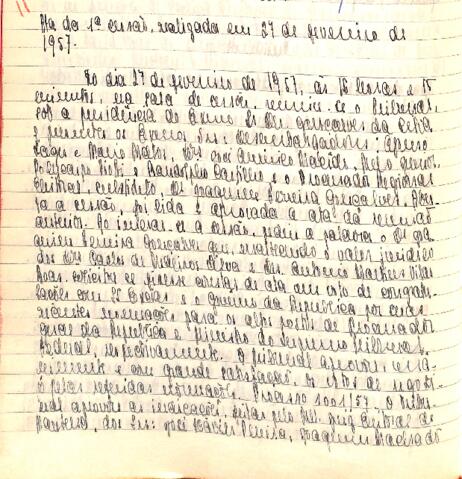 Ata da 1ª sessão, realizada em 27 de fevereiro de
1957.
Ao dia 27 de fevereiro de 1957, às 15 horas e 15
minutos, na sala de sessões, reuniu-se o Tribunal,
sob a presidência do Exmo. Sr. Des. Gonçalves da Silva
e presentes os Exmos. Srs. Desembargadores:
e Mário Matos, Drs. José Américo Macêdo,
e o Procurador Regional
Eleitoral, substituto, Dr. Joaquim Ferreira Gonçalves. Aber-
ta a sessão, foi lida e aprovada a ata da reunião
anterior. Ao a sessão, pediu a palavra o Dr. Joa-
quim Ferreira Gonçalves que, enaltecendo o valor jurídico
dos Drs. Carlos de Medeiros Silva e Dr. Antonio Martins Vilas
Boas, solicitou se fizesse constar de ata um voto de congratu-
lações com Ss. Excias. e o governo da República por suas
recentes nomeações para os altos postos de Procurador
geral da República e Ministro do Supremo Tribunal
Federal, respectivamente. O Tribunal aprovou, unâ-
nimemente e com grande satisfação, os votos de
pelas referidas nomeações. Processo 1001/57. O Tribu-
nal aprovou as indicações, feitas pelo MM. Juiz Eleitoral de
dos Srs: José Xavier Pereira, Joaquim Machado